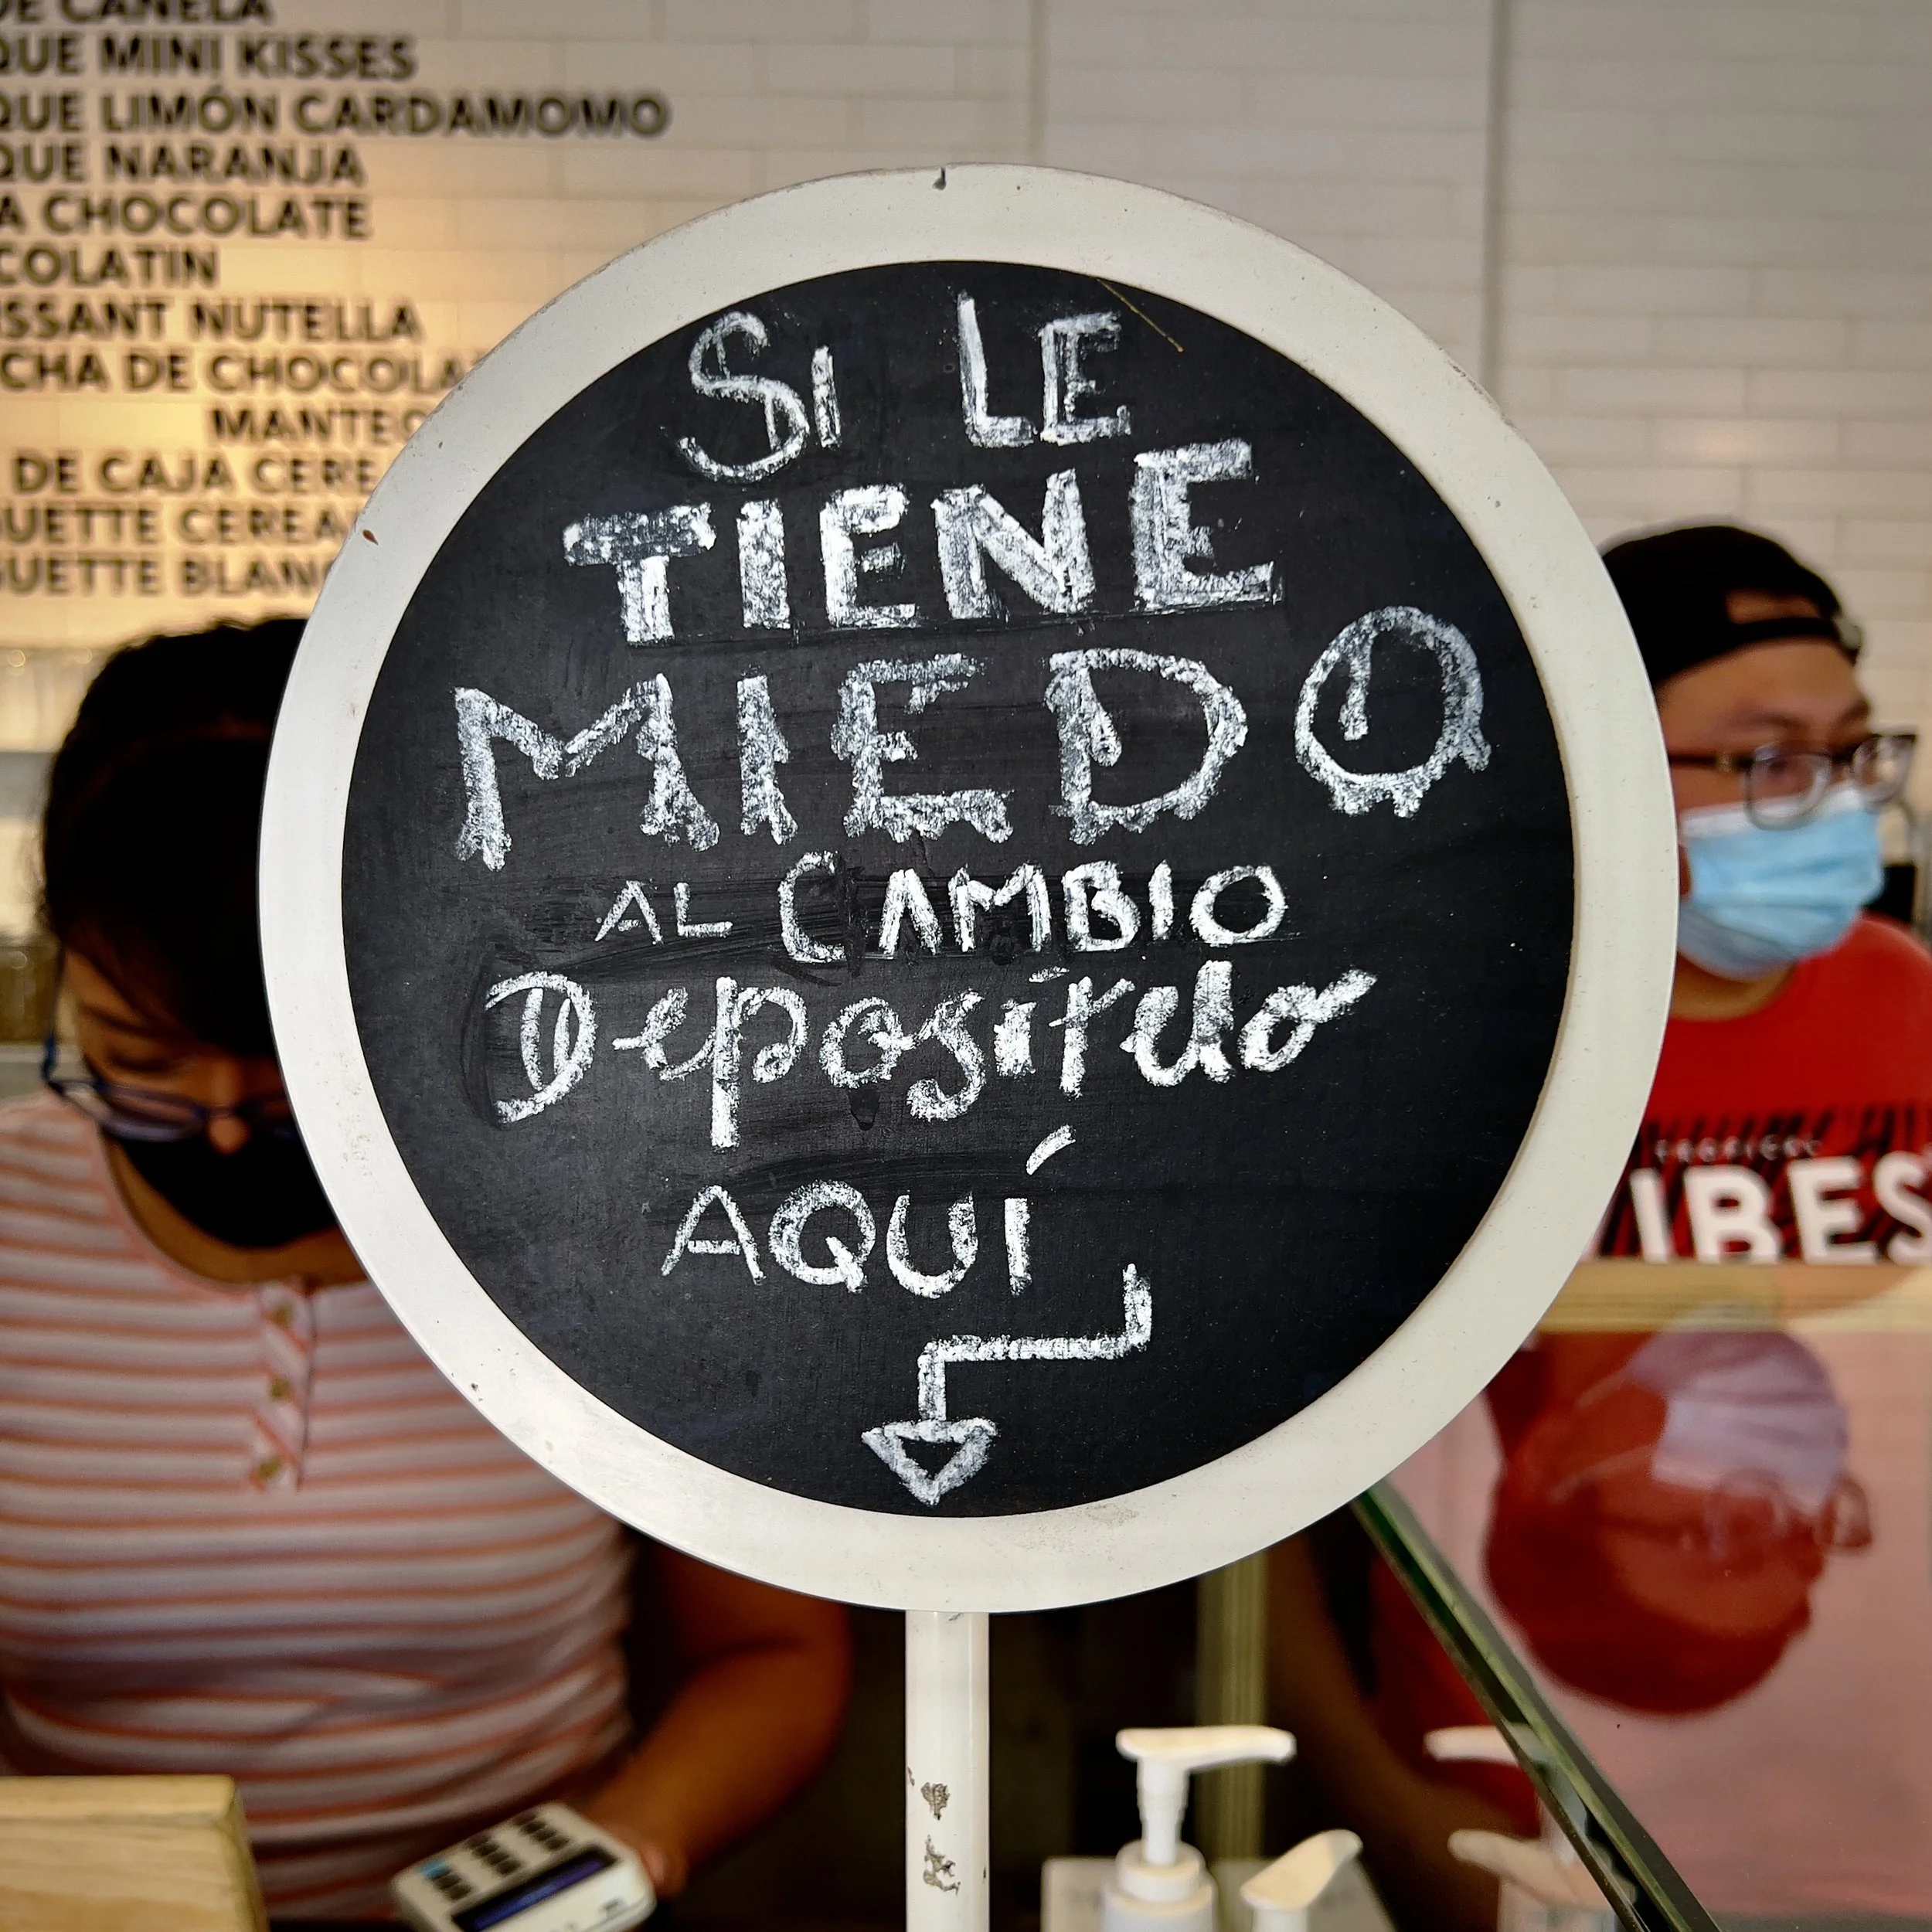 DE CANELA
QUE MINI KISSES
QUE LIMÓN CARDAMOMO
QUE NARANJA
A CHOCOLATE
COLATIN
SSANT NUTELLA
CHA DE CHOCOLA
MANTEQ
DE CAJA CERE
UETTE CEREA
GUETTE BLANC
SI LE
TIENE
MIEDO
AL CAMBIO
Deposítelo
AQUÍ
IBES